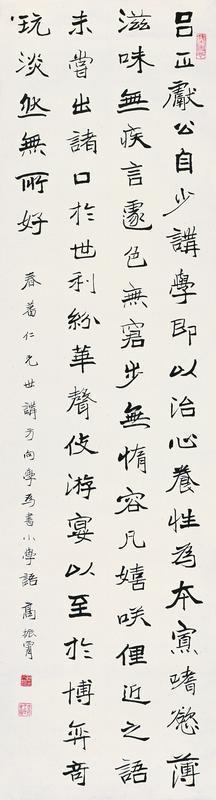 呂正獻公自少講學即以治心養性為本寡嗜慾薄
滋味無疾言遽色無窘步無惰容凡嬉咲俚近之語
未嘗出諸口於世利紛華聲伎游宴以至於博弈奇
玩淡然無所好
春蕃仁兄世講方向學為書小學語 高振霄